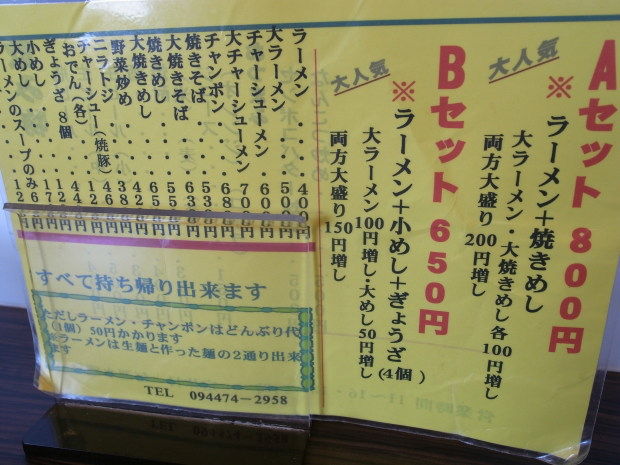 Aセット 800円
大人気
※ラーメン+焼きめし
大ラーメン・大焼きめし各100円増し
両方大盛り 200円増し
Bセット 650円
大人気
※ラーメン+小めし+ぎょうざ(4個)
大ラーメン100円増し・大めし50円増し
両方大盛り 150円増し
ラーメン・・・400円
大ラーメン・・500円
チャーシューメン・600円
大チャーシューメン 700円
チャンポン
焼きそば
大焼きそば
焼きめし
大焼きめし
野菜炒め
ニラトジ
チャーシュー(焼豚)
おでん(各)
ぎょうざ 8個
小めし
大めし
ラーメンのスープのみ
すべて持ち帰り出来ます
ただしラーメン・チャンポンはどんぶり代
(1個)50円かかります
※ラーメンは生麺と作った麺の2通り出来
ます
TEL 094474-2958